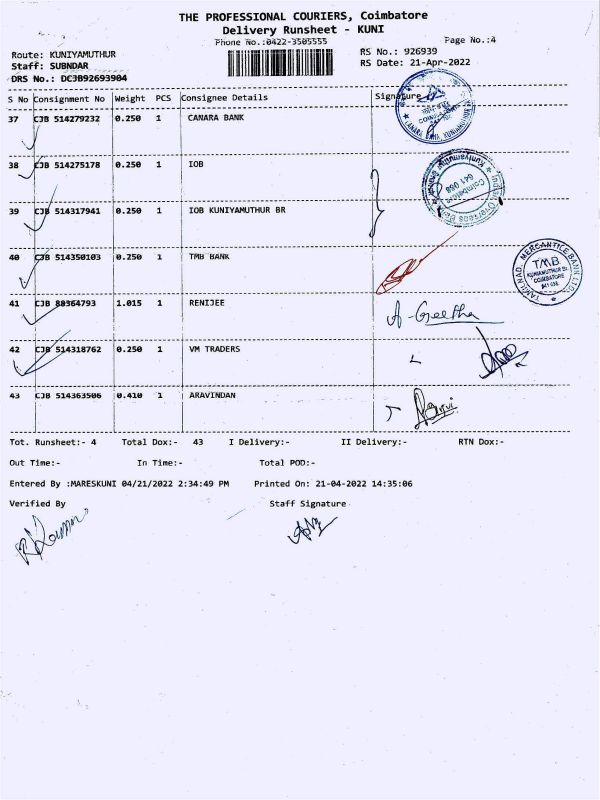 THE PROFESSIONAL COURIERS, Coimbatore
Delivery Runsheet - KUNI
Phone No.:0422-3505555
Page No.:4
Route: KUNIYAMUTHUR
RS No.: 926939
Staff: SUBNDAR
RS Date: 21-Apr-2022
DRS No.: DCJB92693904
S No Consignment No Weight PCS Consignee Details Signature
37 CJB 514279232 0.250 1 CANARA BANK
38 CJB 514275178 0.250 1 IOB
39 CJB 514317941 0.250 1 IOB KUNIYAMUTHUR BR
40 CJB 514350103 0.250 1 TMB BANK
TAMILNAD MERCANTILE BANK LTD.
TMB
KUNIAMUTHUR BR.
COIMBATORE
641 008
41 CJB 88364793 1.015 1 RENIJEE A-Geetha
42 CJB 514318762 0.250 1 VM TRADERS
43 CJB 514363506 0.410 1 ARAVINDAN
Tot. Runsheet:- 4 Total Dox:- 43 I Delivery:- II Delivery:- RTN Dox:-
Out Time:- In Time:- Total POD:-
Entered By :MARESKUNI 04/21/2022 2:34:49 PM Printed On: 21-04-2022 14:35:06
Verified By Staff Signature